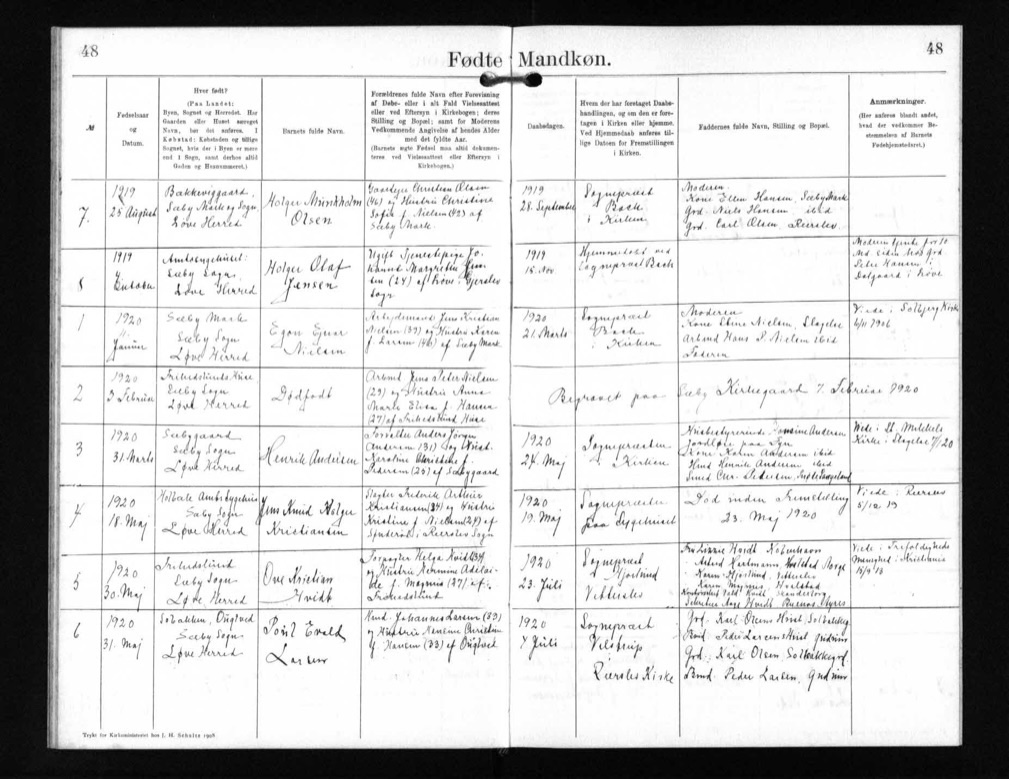 48
Fødte Mandkøn.
48
№
Fødselsaar
og
Datum.
Hvor født?
(Paa Landet:
Byen, Sognet og Herredet. Har
Gaarden eller Huset særeget
Navn, bør det anføres. I
Købstad: Købstaden og tillige
Sognet, hvis der i Byen er mere
end 1 Sogn, samt derhos altid
Gaden og Husnummeret.)
Barnets fulde Navn.
Forældrenes fulde Navn efter Forevisning
af Døbe- eller i alt Fald Vielsesattest
eller ved Eftersyn i Kirkebogen; deres
Stilling og Bopæl; samt for Moderens
Vedkommende Angivelse af hendes Alder
med det fyldte Aar.
(Barnets ægte Fødsel maa altid dokumen-
teres ved Vielsesattest eller Eftersyn i
Kirkebogen.)
Daabsdagen.
Hvem der har foretaget Daabs-
handlingen, og om den er fore-
tagen i Kirken eller hjemme.
Ved Hjemmedaab anføres til-
lige Datoen for Fremstillingen
i Kirken.
Faddernes Navn, Stilling og Bopæl.
Anmærkninger.
(Her anføres blandt andet,
hvad der vedkommer Be-
stemmelsen af Barnets
Fødehjemstedsret.)
7.
1919
25 August
Bækkeviggaard,
Sæby Mark og Sogn
Løve Herred
Holger Munkholm
Olsen
Gaardejer Christian Olsen
(46) og Hustru Christine
Sofie f. Nielsen (42) af
Sæby Mark.
1919
28. September
Sognepræst
Bach
i Kirken
Moderen.
Kone Ellen Hansen, Sæby Mark
Grd. Niels Hansen, ibid
Grd. Carl Olsen Reerslev.
8
1919
4.
Oktober
Amtssygehuset:
Sæby Sogn.
Løve Herred
Holger Olaf
Jensen
Ugift Tjenestepige Jo-
hanne Margrethe Jen-
sen (24) af Løve: Gjerslev
Sogn
1919
15. Nov
Hjemmedøbt ved
Sognepræst Bach
Moderen tjente for 10
Md. siden hos Grd.
Peter Hansen i
Dalgaard i Løve
1
1920
Januar
Sæby Mark
Sæby Sogn
Løve Herred
Egon Ejnar
Nielsen
Arbejdsmand Jens Kristian
Nielsen (39) og Hustru Karen
f. Larsen (46) af Sæby Mark
1920
21. Marts
Sognepræst
Bach
i Kirken
Moderen
Kone Nielsen, Slagelse
Arbmd Hans P. Nielsen ibid
Faderen
Viede i Solbjerg Kirke
6/11 1906
2
1920
3 Februar
Frihedslunds Huse
Sæby Sogn
Løve Herred
Dødfødt
Arbmd. Jens Peter Nielsen
(29) og Hustru Anna
Marie Elisa f. Hansen
(27) af Frihedslund Huse
Begravet paa Sæby Kirkegaard 7. Februar 1920
3
1920
31. Marts
Sæbygaard
Sæby Sogn
Løve Herred
Henrik Andersen
Forvalter Anders Jørgen
Andersen (31) og Hust.
Karoline Christine f.
Pedersen (25) af Sæbygaard
1920
24. Maj
Sognepræsten
i Kirken
Husbestyrerinde Andersen
paa Fyn
Kone Andersen ibid
Hmd Henrik Andersen ibid
Smed Chr. Pedersen,
Viede i St. Mikkels
Kirke i Slagelse /20
4
1920
18. Maj
Holbæk Amtssygehus
Sæby Sogn
Løve Herred
Jens Knud Holger
Kristiansen
Frederik Arthur
Kristiansen (34) og Hustru
Kristine f. Nielsen (24) af
Reerslev Sogn
1920
19. Maj
Sognepræsten
paa Sygehuset
Død inden Fremstilling
23. Maj 1920
Viede i Reerslev
5/12 19
5
1920
30. Maj
Frihedslund
Sæby Sogn
Løve Herred
Ove Kristian
Hvidt
Forpagter Helge Hvidt (34)
og Hustru Hermine Adelai-
de f. Magnus (27) af
Frihedslund
1920
23. Juli
Sognepræst
Hjortlund
Vetterslev
Fru Lizzie Hvidt København
Astrid Hartmann, Halstad Norge
Karen Hjortlund, Vetterslev
Karen Magnus, Halstad
Hvidt Randeborg
Aage Hvidt Buenos Ayres
Viede i Trefoldigheds
Menighed i Kristiania
15/9 18
6
1920
31. Maj
Solbakken, Ougtved
Sæby Sogn
Løve Herred
Poul Evald
Larsen
Hmd. Johannes Larsen (39)
og Hustru Hansine Christine
f. Hansen (33) af Ougtved
1920
7 Juli
Sognepræst
Vilstrup
Reerslev Kirke
Grd. Karl Olsens Hust. Solbakkeg
Bmd Peder Larsens Hust. Gudmin
Grd. Karl Olsen, Solbakkeg
Bmd. Peder Larsen, Gudmin
Trykt for Kirkeministeriet hos J. H. Schultz 1908.